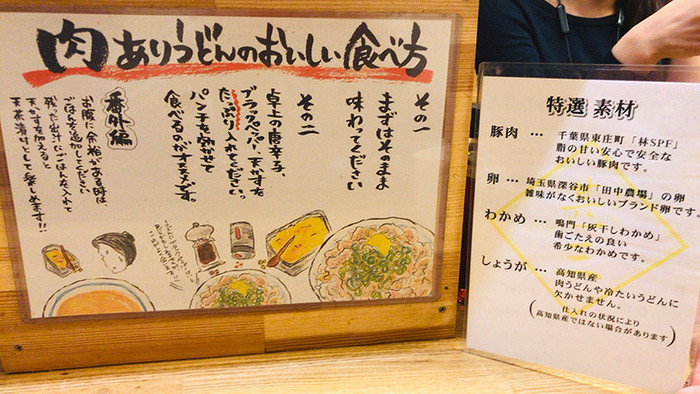 肉ありうどんのおいしい食べ方
その一
まずはそのまま
味わってください
その二
卓上の唐辛子、
ブラックペパー・天かすを
たっぷり入れてください。
パンチを効かせて
食べるのがオススメです。
番外編
お腹に余裕がある時は、
ごはんを追加してください。
残った出汁にごはんを入れて
天かすを加えると
天茶漬けとして楽しめます!!
特選 素材
豚肉 … 千葉県東庄町「林SPF」
脂の甘い安心で安全な
おいしい豚肉です。
卵 … 埼玉県深谷市「田中農場」の卵
雑味がなくおいしいブランド卵です。
わかめ … 鳴門「灰干しわかめ」
歯ごたえの良い
希少なわかめです。
しょうが … 高知県産
肉うどんや冷たいうどんに
欠かせません。
(仕入れの状況により
高知県産ではない場合があります)